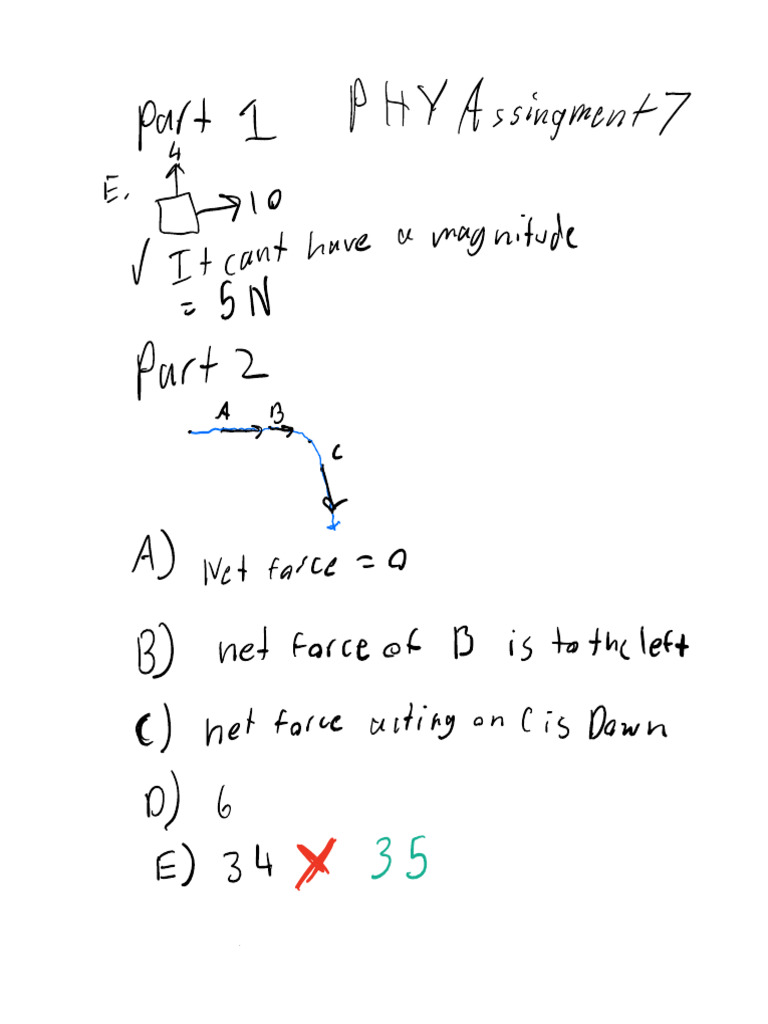 Part 1 PHY Assingment 7
4
E.
10
✓ It cant have a magnitude
= 5N
Part 2
A B
C
A) Net force = 0
B) net force of B is to the left
C) net force acting on C is Down
D) 6
E) 34 X 35